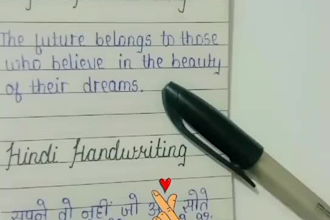 The future belongs to those
who believe in the beauty
of their dreams.
Hindi Handwriting
सपने वो नहीं जो सोते